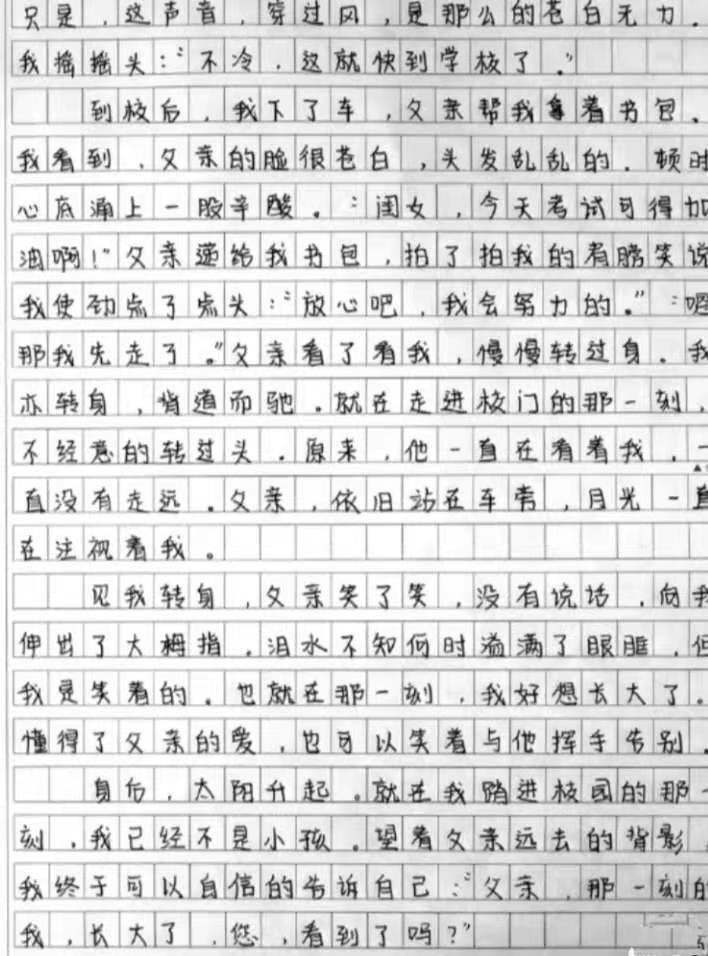 只是,这声音,穿过风,是那么的苍白无力.
我摇摇头:“不冷.这就快到学校了.”
到校后,我下了车,父亲帮我拿着书包.
我看到,父亲的脸很苍白,头发乱乱的.顿时
心底涌上一股辛酸.“闺女,今天考试可得加
油啊!”父亲递给我书包,拍了拍我的肩膀笑说
我使劲点了点头:“放心吧,我会努力的.”“嗯
那我先走了.”父亲看了看我,慢慢转过身.我
亦转身,背道而驰.就在走进校门的那一刻,
不经意的转过头.原来,他一直在看着我.一
直没有走远.父亲,依旧站在车旁,目光一直
在注视着我。
见我转身,父亲笑了笑,没有说话,向我
伸出了大拇指.泪水不知何时溢满了眼眶,但
我是笑着的.也就在那一刻,我好想长大了.
懂得了父亲的爱,也可以笑着与他挥手告别.
身后,太阳升起.就在我踏进校园的那一
刻,我已经不是小孩.望着父亲远去的背影,
我终于可以自信的告诉自己:“父亲,那一刻的
我,长大了,您,看到了吗?”